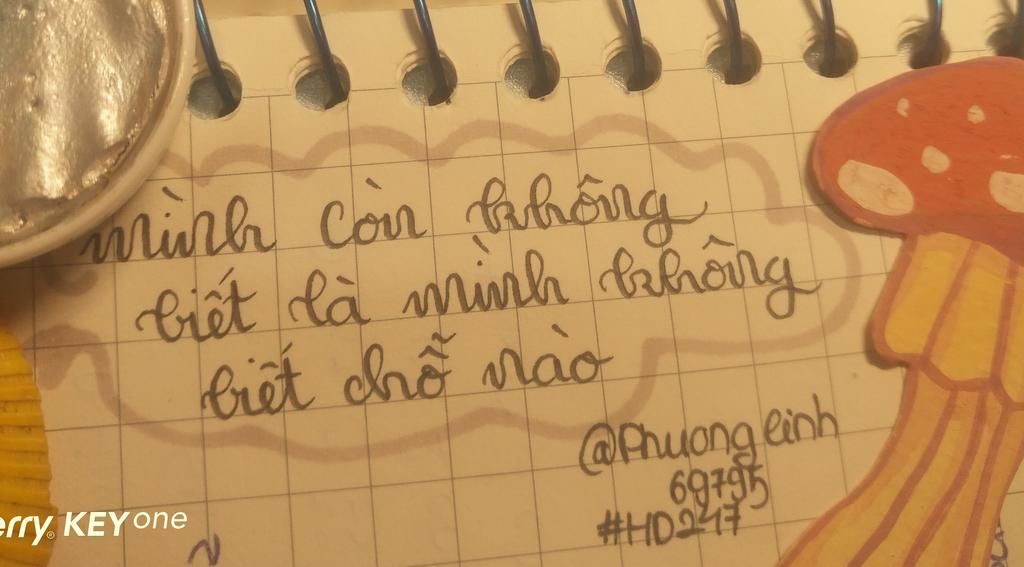 mình còn không
biết là mình không
biết chỗ nào
@Phuonglinh
69795
#HD247
erry® KEYone